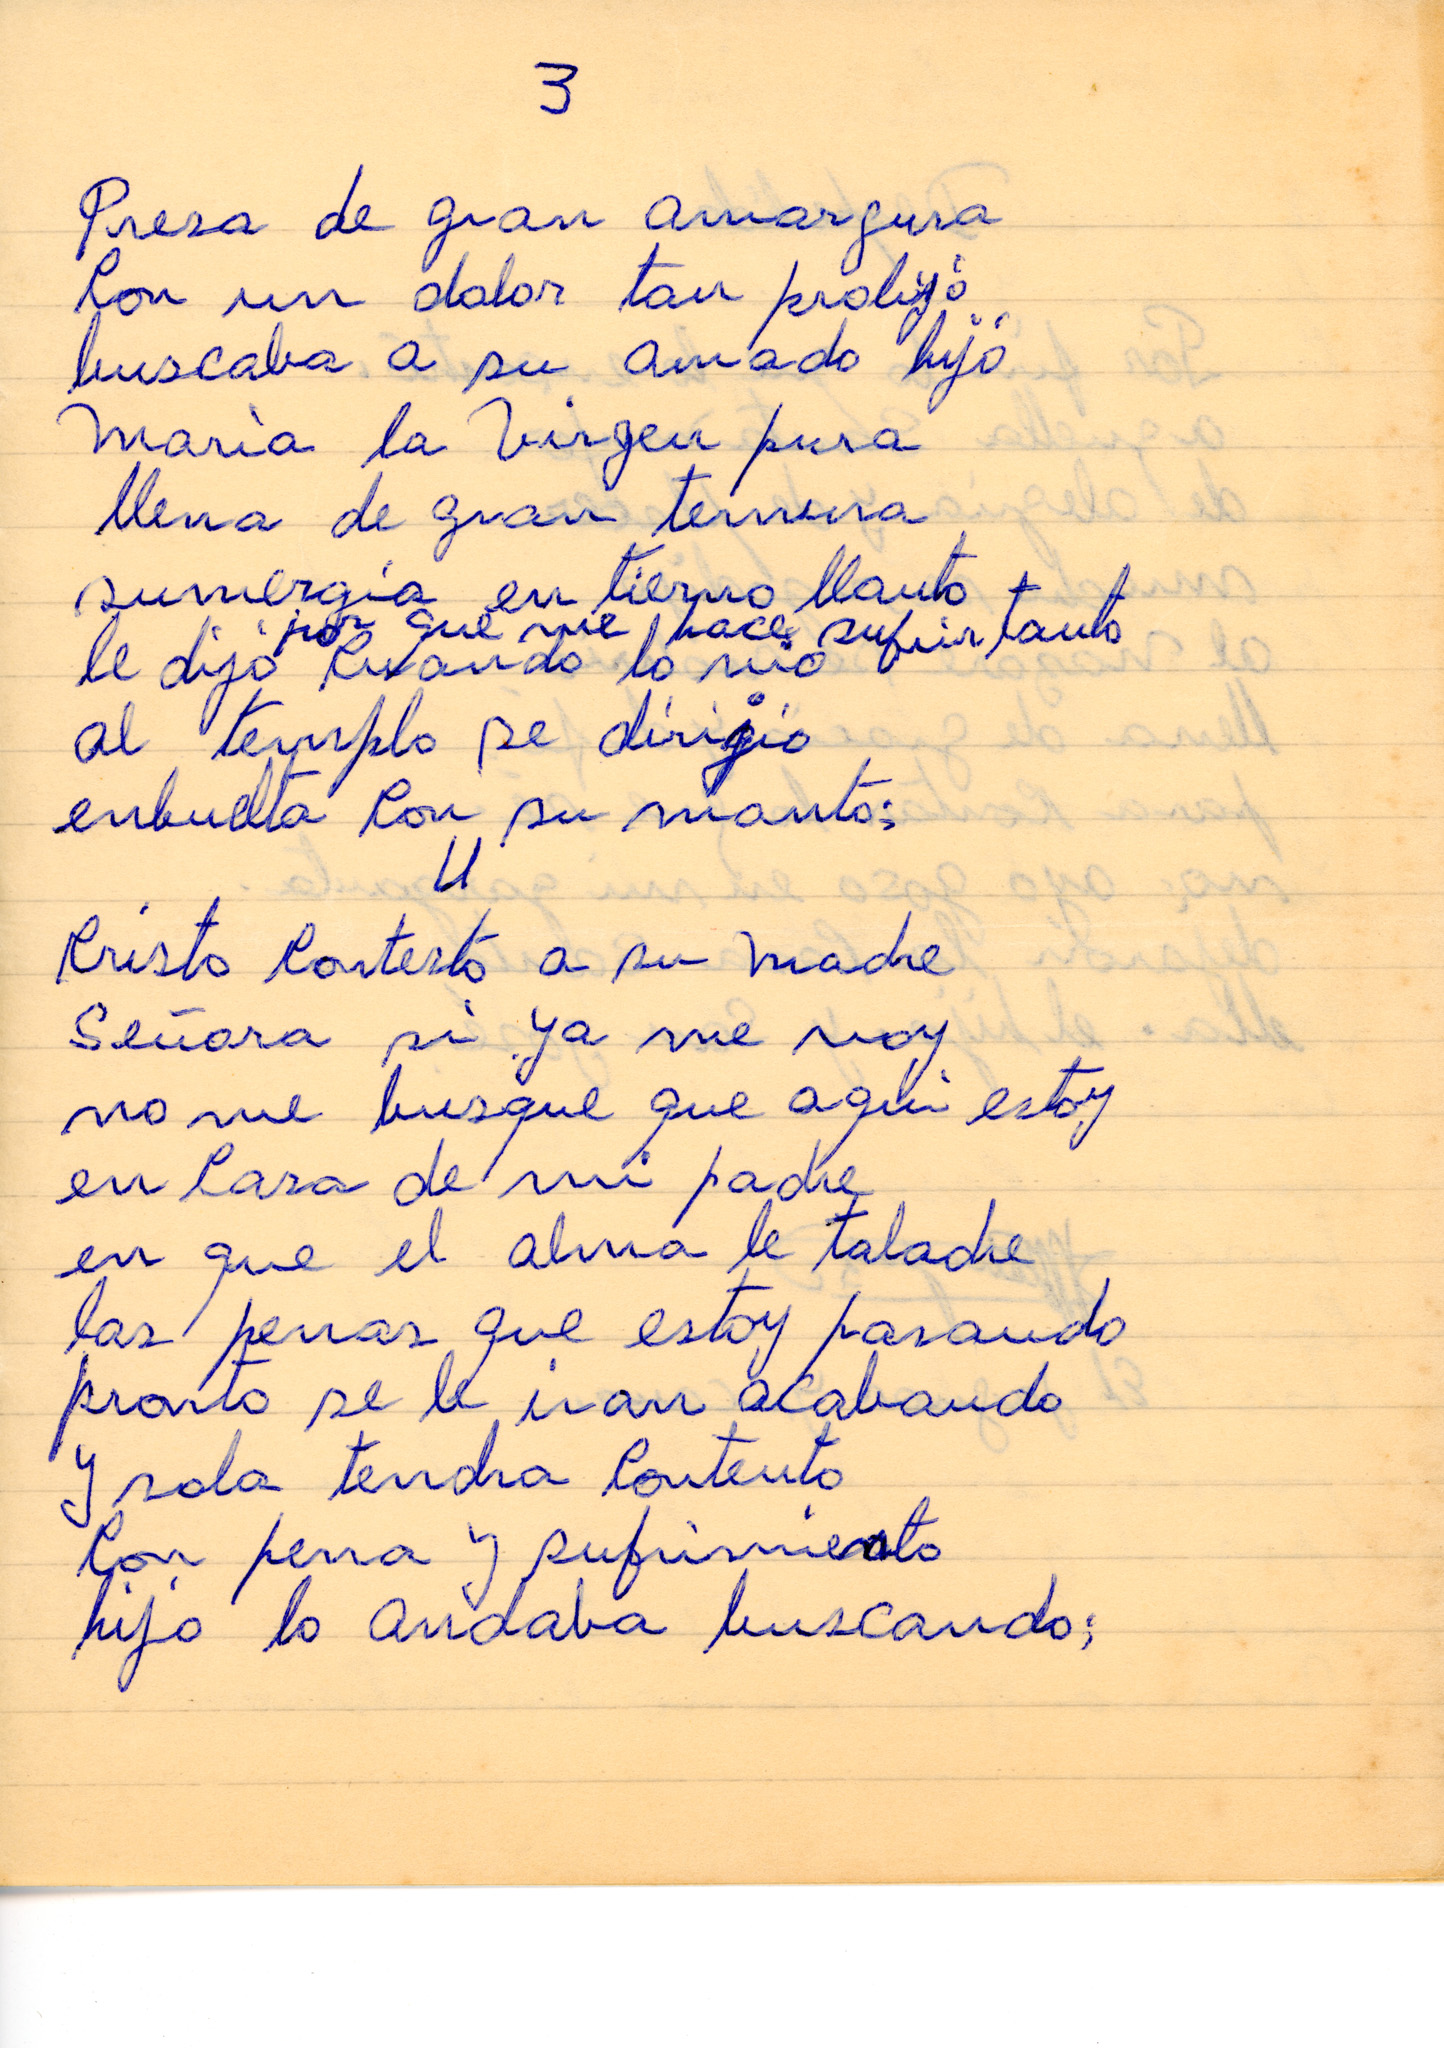 3
Presa de gran amargura
Con un dolor tan prolijo
buscaba a su amado hijo
Maria la Virgen pura
llena de gran ternura
sumergia en tierno llanto +
por que me hace sufrir tanto
le dijo cuando lo vio
al templo se dirigio
enbuelta con su manto;
4
Cristo contesto a su Madre
Señora si ya me voy
no me busque que aqui estoy
en casa de mi padre
en que el alma le taladre
las penas que estoy pasando
pronto se le iran acabando
y sola tendra contento
con pena y sufrimiento
hijo lo andaba buscando;